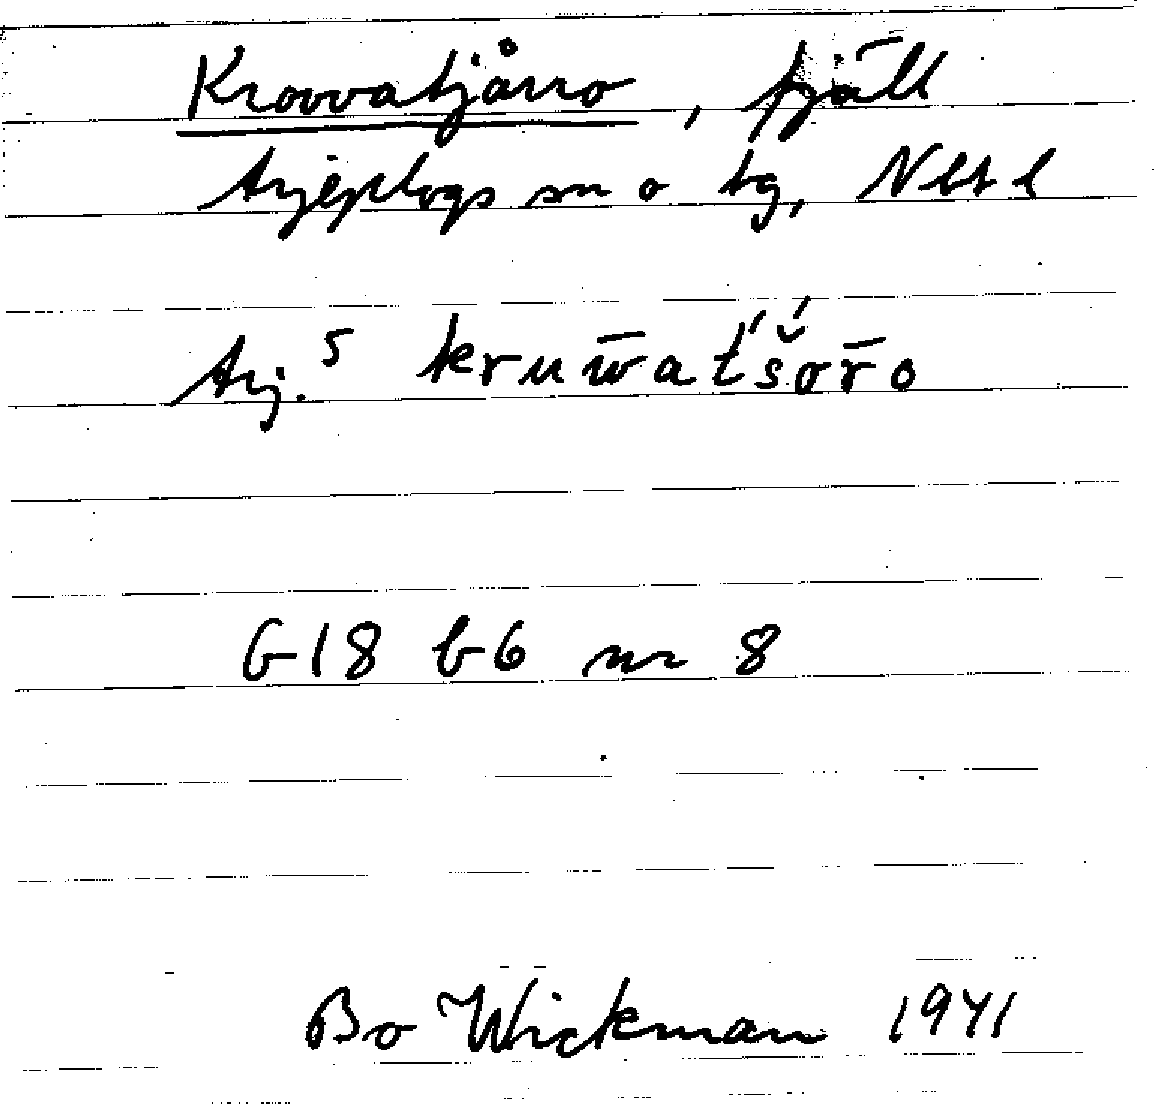 Krovvatjårro, fjäll
Arjeplogs sn o tg, Nbt l
Arj. 5 kruw̄at́š́or̄o
G18 b6 nr 8
Bo Wickman 1941